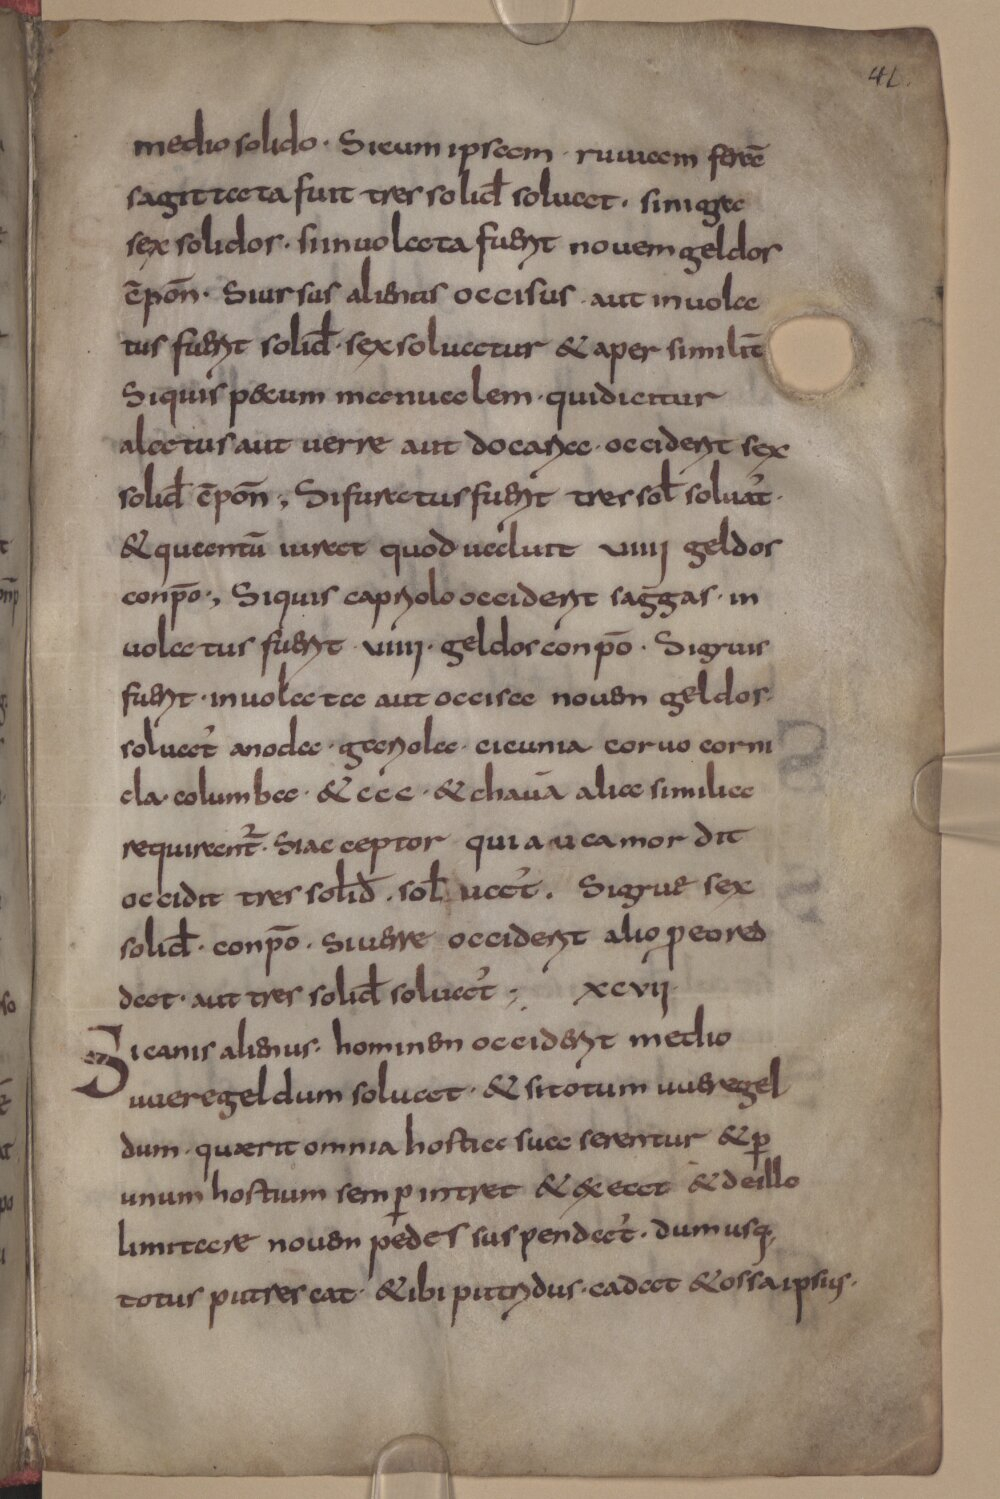 41.
medio solido · Si cum ipsam · ruuam ferẽ
sagittata fuit tres solid̅ soluat · si nigra
sex solidos · si inuolata fuerit nouem geldos
c̅pōn · Si ursus alienus occisus aut inuola
tus fuerit solid̅ · sex soluatur & aper similit̅
Si quis pecum manualem · qui dicitur
alactus aut uerre aut docaria · occiderit sex
solid̅ c̅pōn ; Si furatus fuerit tres sol̅ soluat̾ ·
& quantū iurat quod ualuit viiij geldos
conpō ·, Si quis capriolo occiderit saggas · in
uolatus fuerit · viiij · geldos conpō · Si gruis
fuerit · inuolata aut occisa nouem geldos ·
soluat̾ anoda · gariola · cicunia coruo corni
cla · columba · & cca · & chauā alia similia
requirent̾ · Si acceptor qui aucam mordit
occidit tres solid̅ . sol uat̾ . Si grue sex
solid̅ · conpō · Si uerre occiderit alio peo red
dat · aut tres solid̅ soluat̾ ; xcvij ·
Si canis alienus · hominem occiderit medio
uueregeldum soluat · & si totum uueregel
dum · quærit omnia hostia sua serentur & p̱
unum hostium semp̱ intret & exeat & de illo
limitare nouem pedes suspendat̾ · dum usq,
totus putrescat · & ibi putridus · cadat & ossa ipsius ·